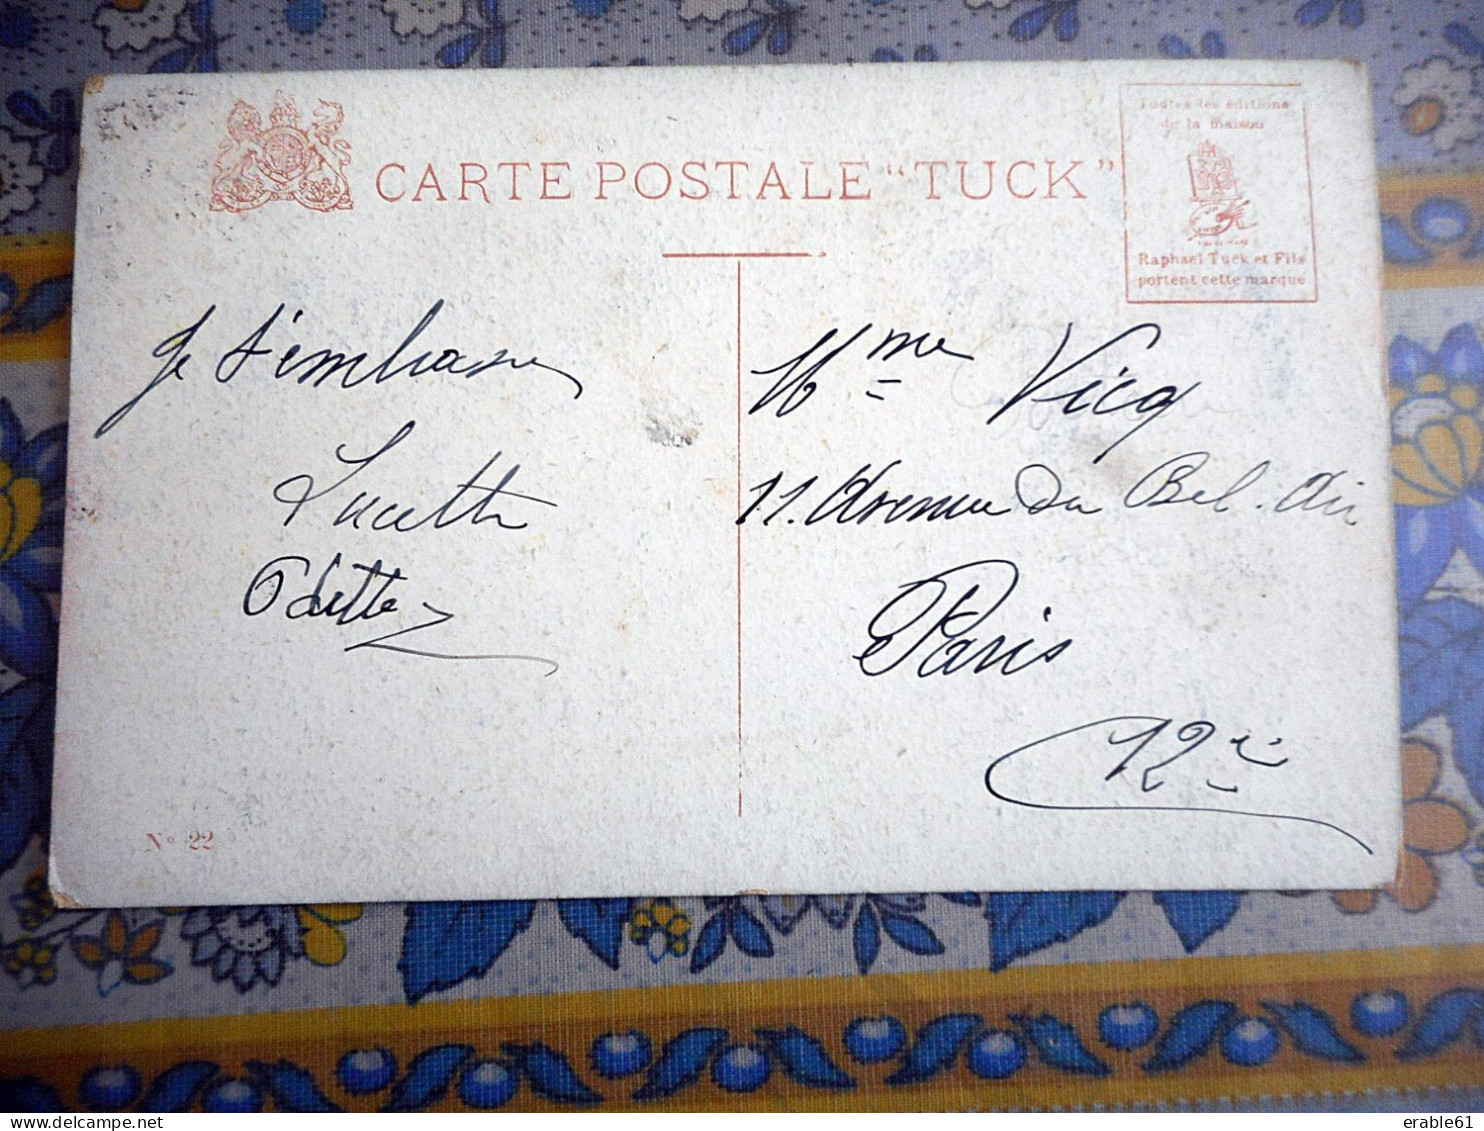 CARTE POSTALE "TUCK"
Toutes les éditions
de la maison
Raphael Tuck et Fils
portent cette marque
Je t'embrasse
Lucette
Odette
Mme Vicq
11. Avenue du Bel-Air
Paris
12e
No 22
delcampe.net
erable61